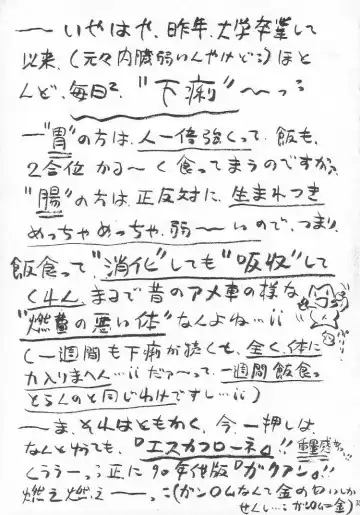 ── いやはや、昨年、大学卒業して
以来、(元々内臓弱いんやけど…)ほと
んど、毎日2、"下痢"〜っ…
─"胃"の方は、人一倍強くって、飯も、
2合位かる〜く食ってまうのですが、
"腸"の方は、正反対に、生まれつき
めっちゃめっちゃ、弱〜いので、つまり、
飯食って、"消化"しても"吸収"して
くれん、まるで昔のアメ車の様な、
"燃費の悪い体"なんよね…ii
(一週間も下痢が続くと、全く、体に
力入りまへん…ii だァ〜って、一週間飯食っ
とらんのと同じわけですし…ii)
──ま、それはともかく、今、一押しは、
なんと言っても、『エスカフローネ』!! 重量感が
くううーっ…正に90年代版『ガクアン』!!
燃え燃え──っ…(ガンダムなんて金の匂いしか
せんし…